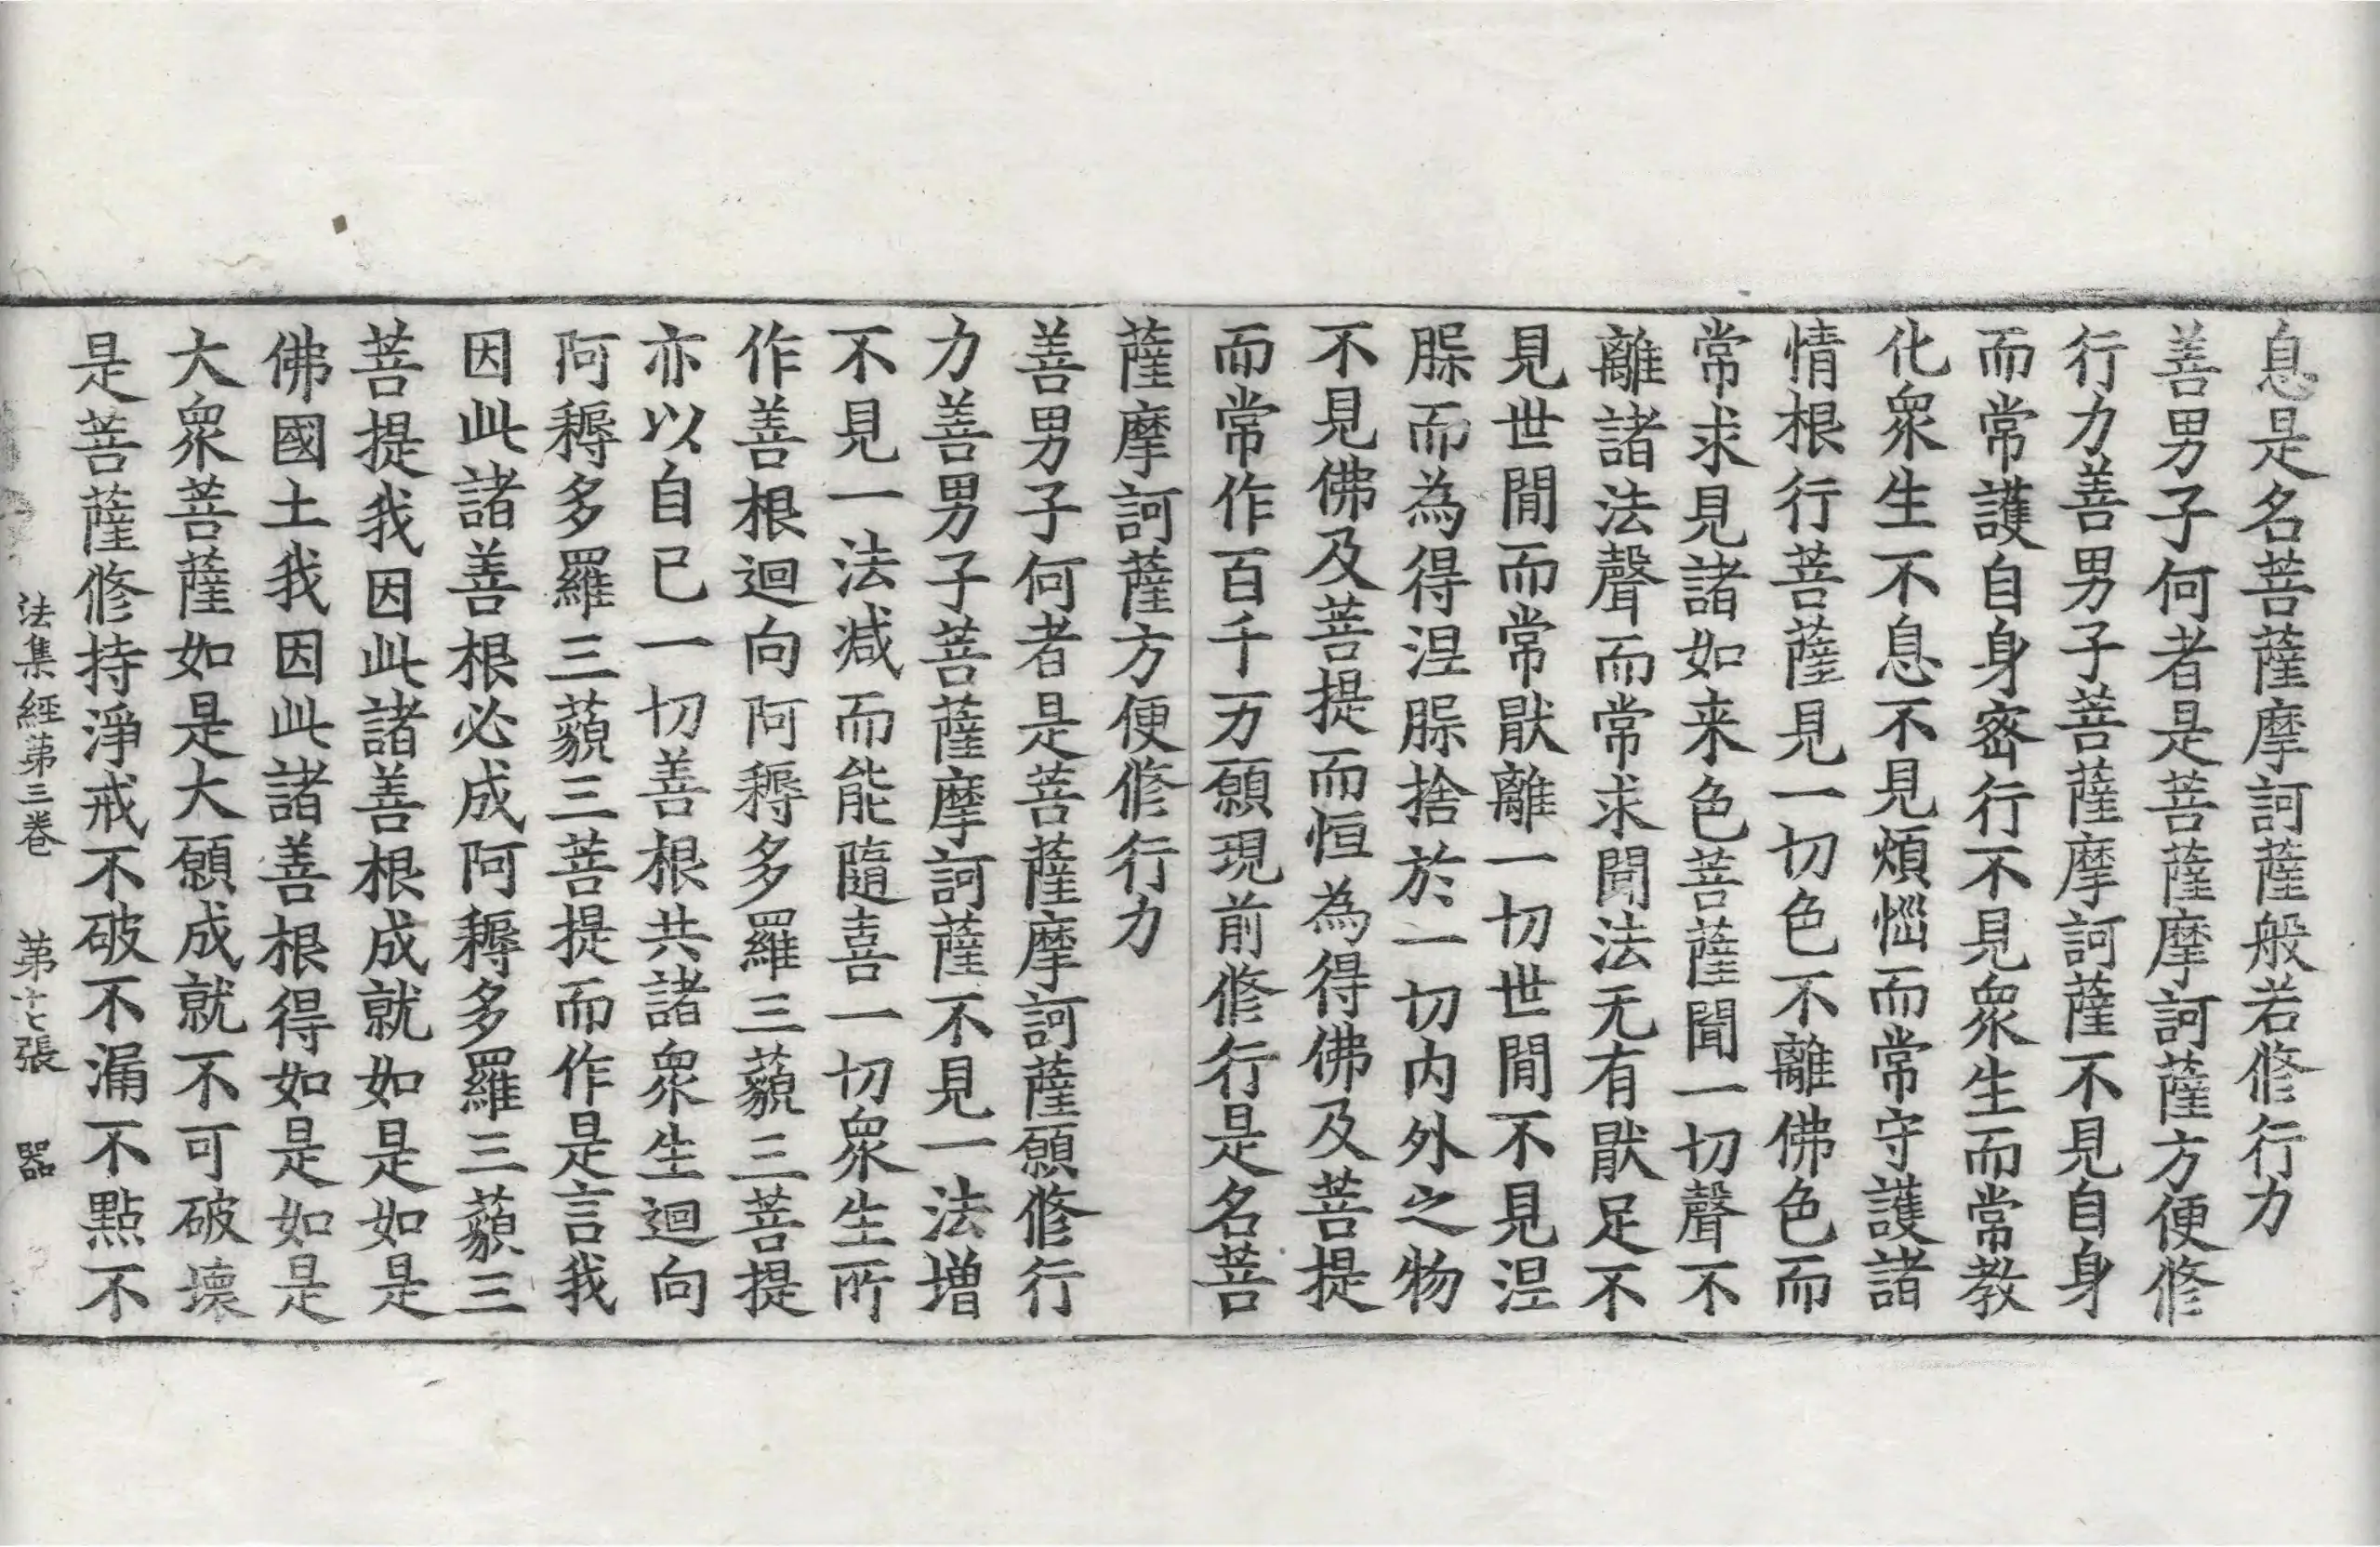 息是名菩薩摩訶薩般若脩行力
善男子何者是菩薩摩訶薩方便脩
行力善男子菩薩摩訶薩不見自身
而常護自身密行不見眾生而常教
化眾生不息不見煩惱而常守護諸
情根行菩薩見一切色不離佛色而
常求見諸如来色菩薩聞一切聲不
離諸法聲而常求聞法无有猒足不
見世閒而常猒離一切世閒不見涅
槃而為得涅槃捨於一切內外之物
不見佛及菩提而恒為得佛及菩提
而常作百千万願現前脩行是名菩
薩摩訶薩方便脩行力
善男子何者是菩薩摩訶薩願脩行
力善男子菩薩摩訶薩不見一法增
不見一法減而能隨喜一切眾生所
作善根迴向阿耨多羅三藐三菩提
亦以自己一切善根共諸眾生迴向
阿耨多羅三藐三菩提而作是言我
因此諸善根必成阿耨多羅三藐三
菩提我因此諸善根成就如是如是
佛國土我因此諸善根得如是如是
大眾菩薩如是大願成就不可破壞
是菩薩脩持淨戒不破不漏不點不
法集經第三卷　第十七張　器